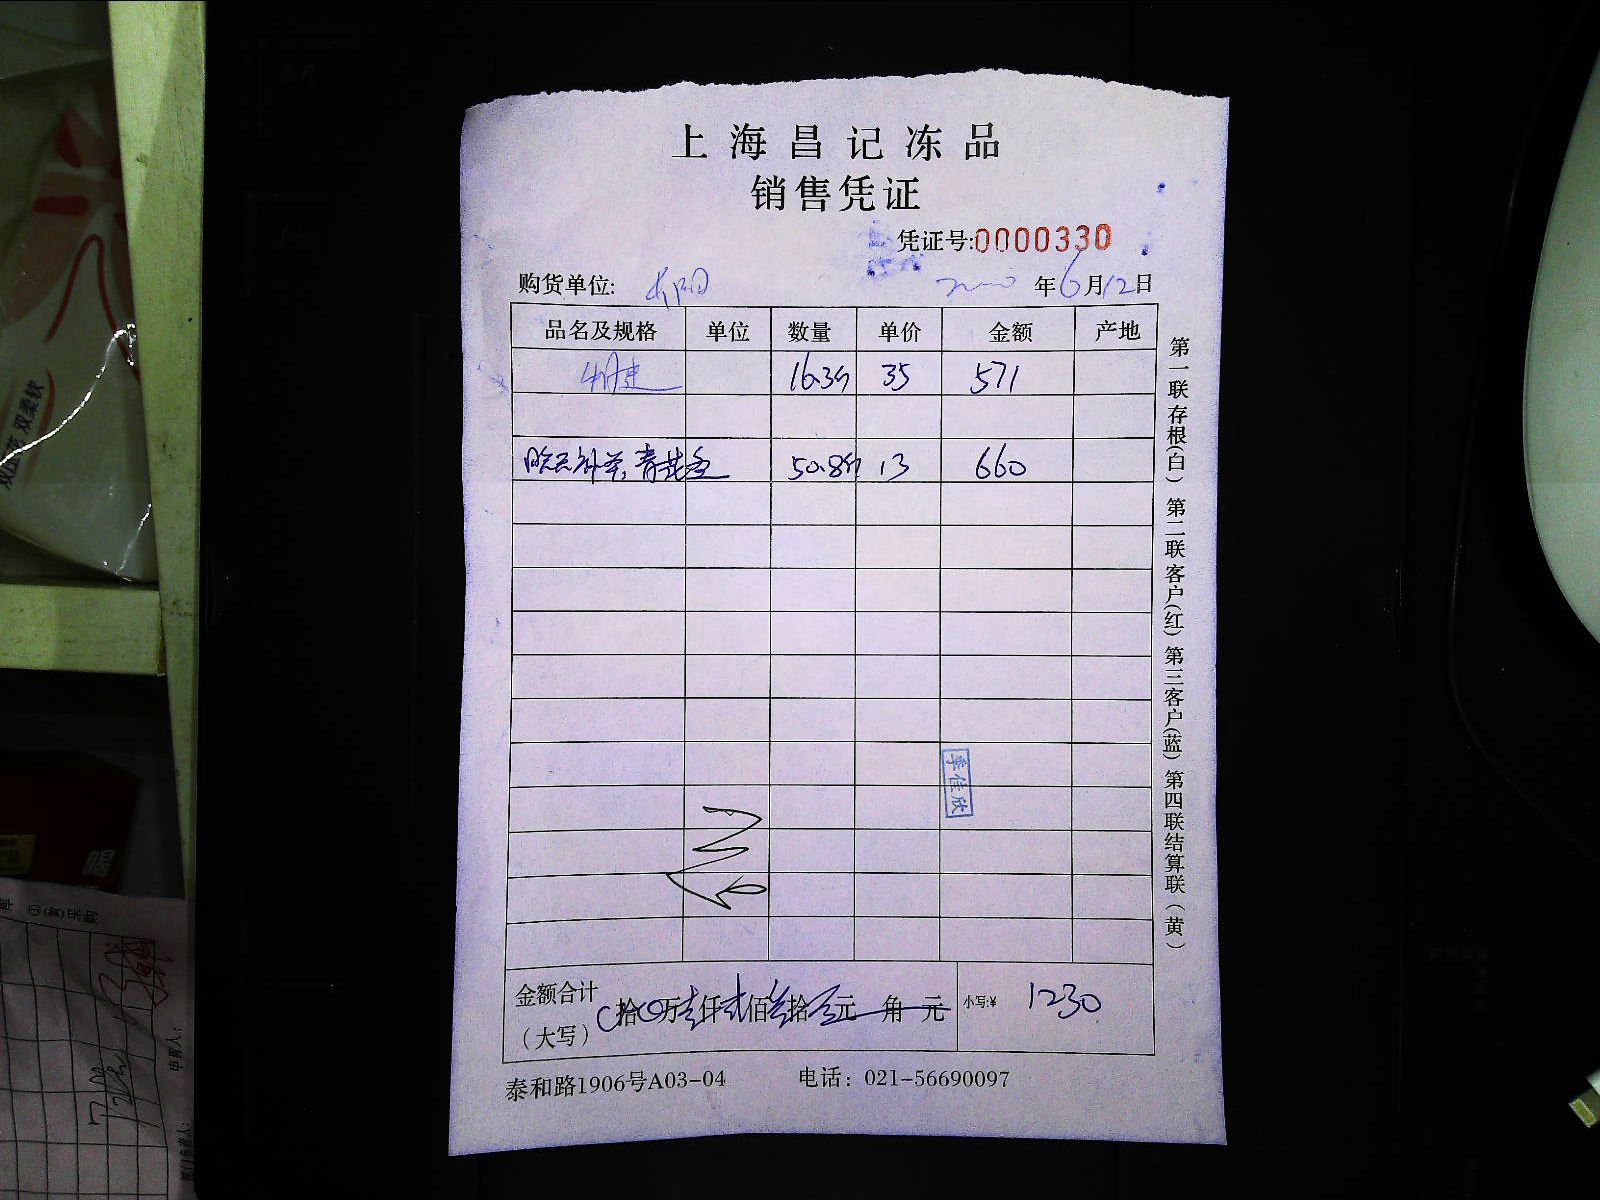 上海昌记冻品
销售凭证
凭证号:0000330
购货单位:
年6月12日
品名及规格 单位 数量 单价 金额 产地
16.3斤 35 571
青花鱼 50.8斤 13 660
季佳欣
金额合计
(大写)
拾 万壹仟贰佰叁拾 元 角 元 小写:¥ 1230
泰和路1906号A03-04 电话: 021-56690097
第一联存根(白) 第二联客户(红) 第三客户(蓝) 第四联结算联(黄)
双柔软
③(黄)采购
申请人: